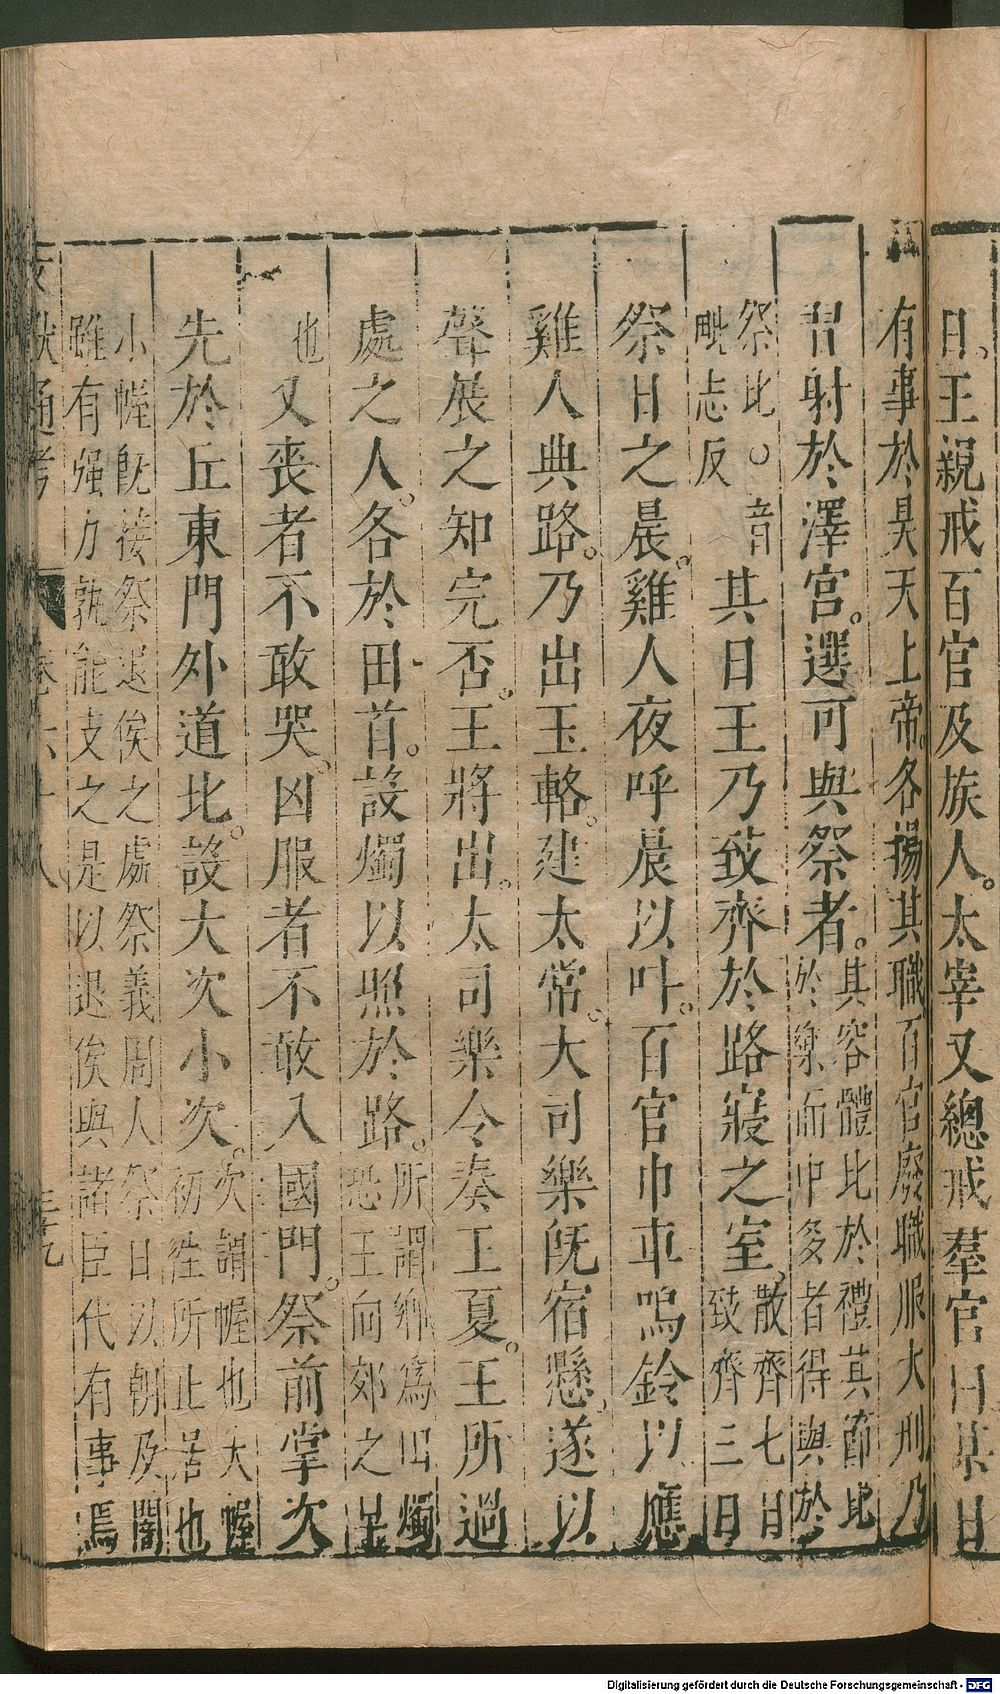 日王親戒百官及族人太宰又總戒羣官曰某日
有事於昊天上帝各揚其職百官廢職服大刑乃
習射於澤宫選可與祭者其容體比於禮其節比
於樂而中多者得與於
祭比○音
毗志反其日王乃致齊於路寢之室散齊七日
致齊三日
祭日之晨雞人夜呼晨以叫百官巾車鳴鈴以應
雞人典路乃出玉輅建太常大司樂既宿懸遂以
聲展之知完否王將出太司樂令奏王夏王所過
處之人各於田首設燭以照於路所謂鄉爲田燭
恐王向郊之早
也又喪者不敢哭凶服者不敢入國門祭前掌次
先於丘東門外道北設大次小次次謂幄也大幄
初往所止居也
小幄既接祭退俟之處祭義周人祭日以朝及闇
雖有强力孰能支之是以退俟與諸臣代有事焉
文獻通考 卷六十八 三十九
Digitalisierung gefördert durch die Deutsche Forschungsgemeinschaft - DFG